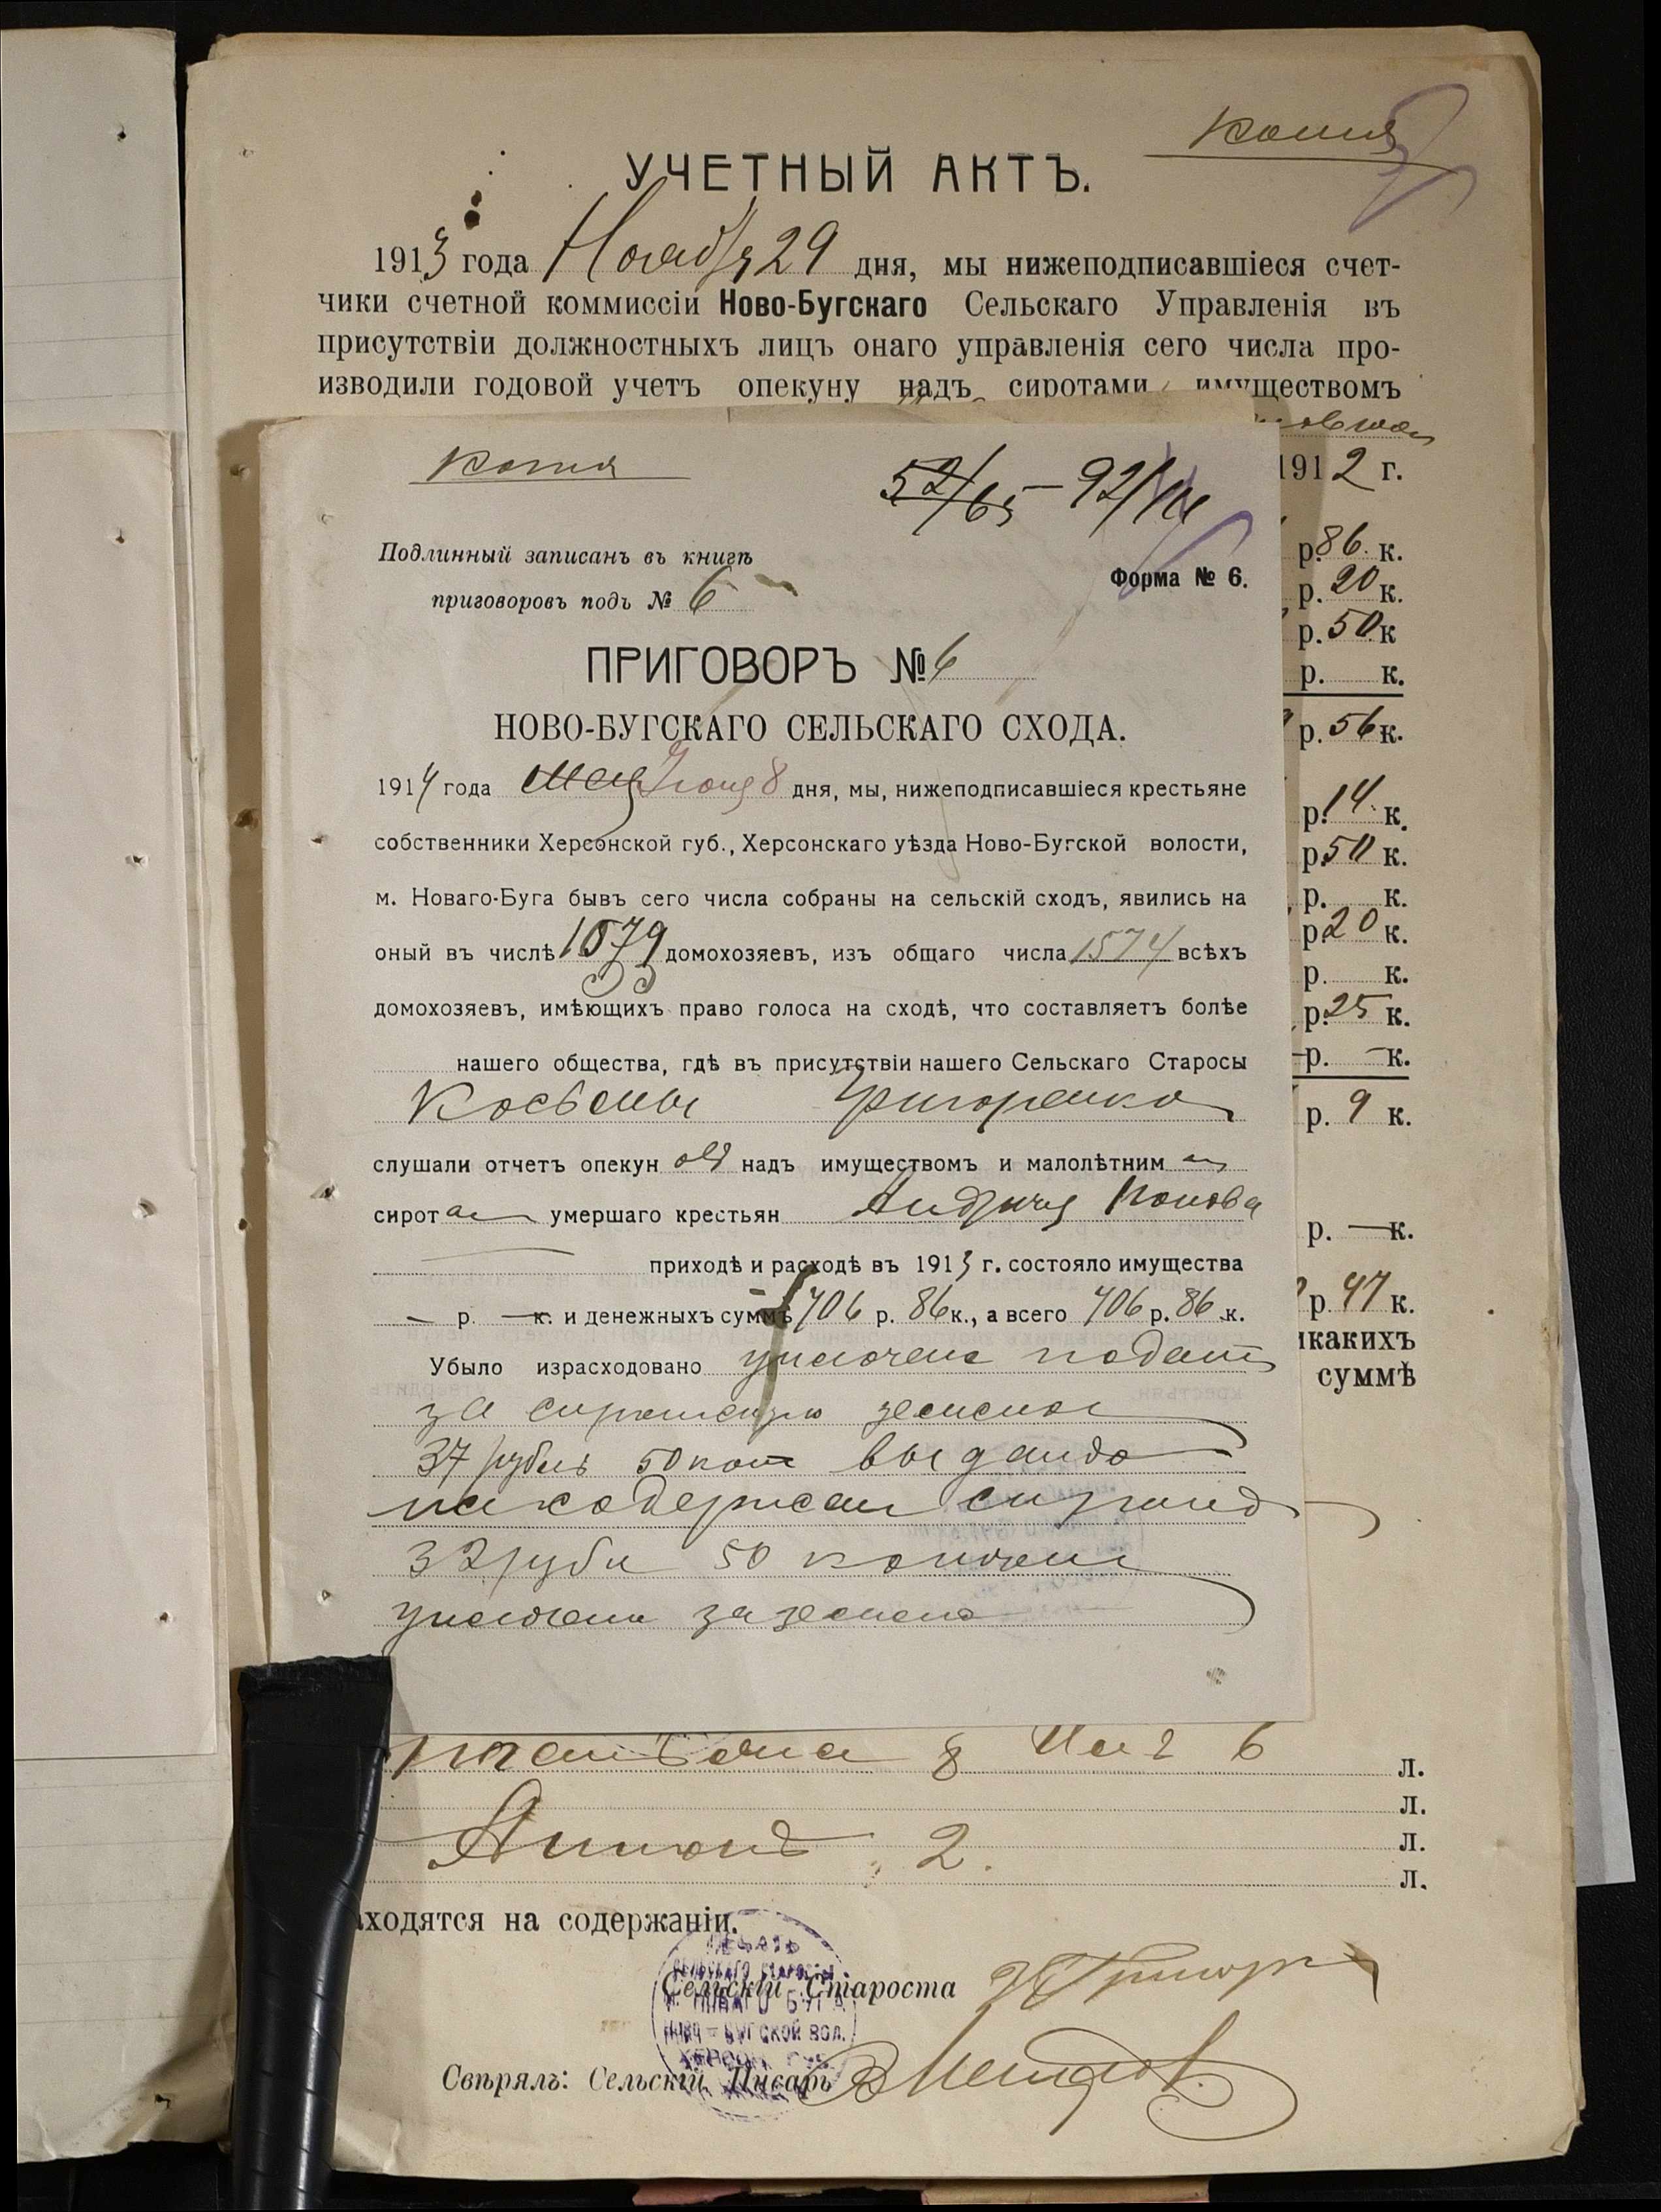 Копия
УЧЕТНЫЙ АКТЪ.
1913 года Ноября 29 дня, мы нижеподписавшіеся счет-
чики счетной коммиссіи Ново-Бугскаго Сельскаго Управленія въ
присутствіи должностныхъ лицъ онаго управленія сего числа про-
изводили годовой учетъ опекуну надъ сиротами имуществомъ
1912 г.
Копия
52/65 – 92/
Подлинный записанъ въ книгѣ
приговоровъ подъ № 6
Форма № 6.
ПРИГОВОРЪ № 6
НОВО-БУГСКАГО СЕЛЬСКАГО СХОДА.
1914 года Мая Іюня 8 дня, мы, нижеподписавшіеся крестьяне
собственники Херсонской губ., Херсонскаго уѣзда Ново-Бугской волости,
м. Новаго-Буга бывъ сего числа собраны на сельскій сходъ, явились на
оный въ числѣ 1079 домохозяевъ, изъ общаго числа 1574 всѣхъ
домохозяевъ, имѣющихъ право голоса на сходѣ, что составляетъ болѣе
нашего общества, гдѣ въ присутствіи нашего Сельскаго Старосы
Косьмы Григоренко
слушали отчетъ опекун овъ надъ имуществомъ и малолѣтним и
сирот ами умершаго крестьян Андрия Попова
приходѣ и расходѣ въ 1913 г. состояло имущества
— р. — к. и денежныхъ суммъ 706 р. 86 к., а всего 706 р. 86 к.
Убыло израсходовано уплочено подати
за сиротскую землю
37 рубль 50 коп выдано
на содержан сирот
32 рубл 50 копеек
уплочено за землю
р. 86 к.
р. 20 к.
р. 50 к
р. к.
р. 56 к.
р. 14 к.
р. 50 к.
р. к.
р. 20 к.
р. к.
р. 25 к.
– р. – к.
р. 9 к.
р. — к.
р. 47 к.
икакихъ
суммѣ
8 6
л.
л.
2. л.
л.
аходятся на содержаніи.
Сельскій Староста
Свѣрялъ: Сельскій Писарь